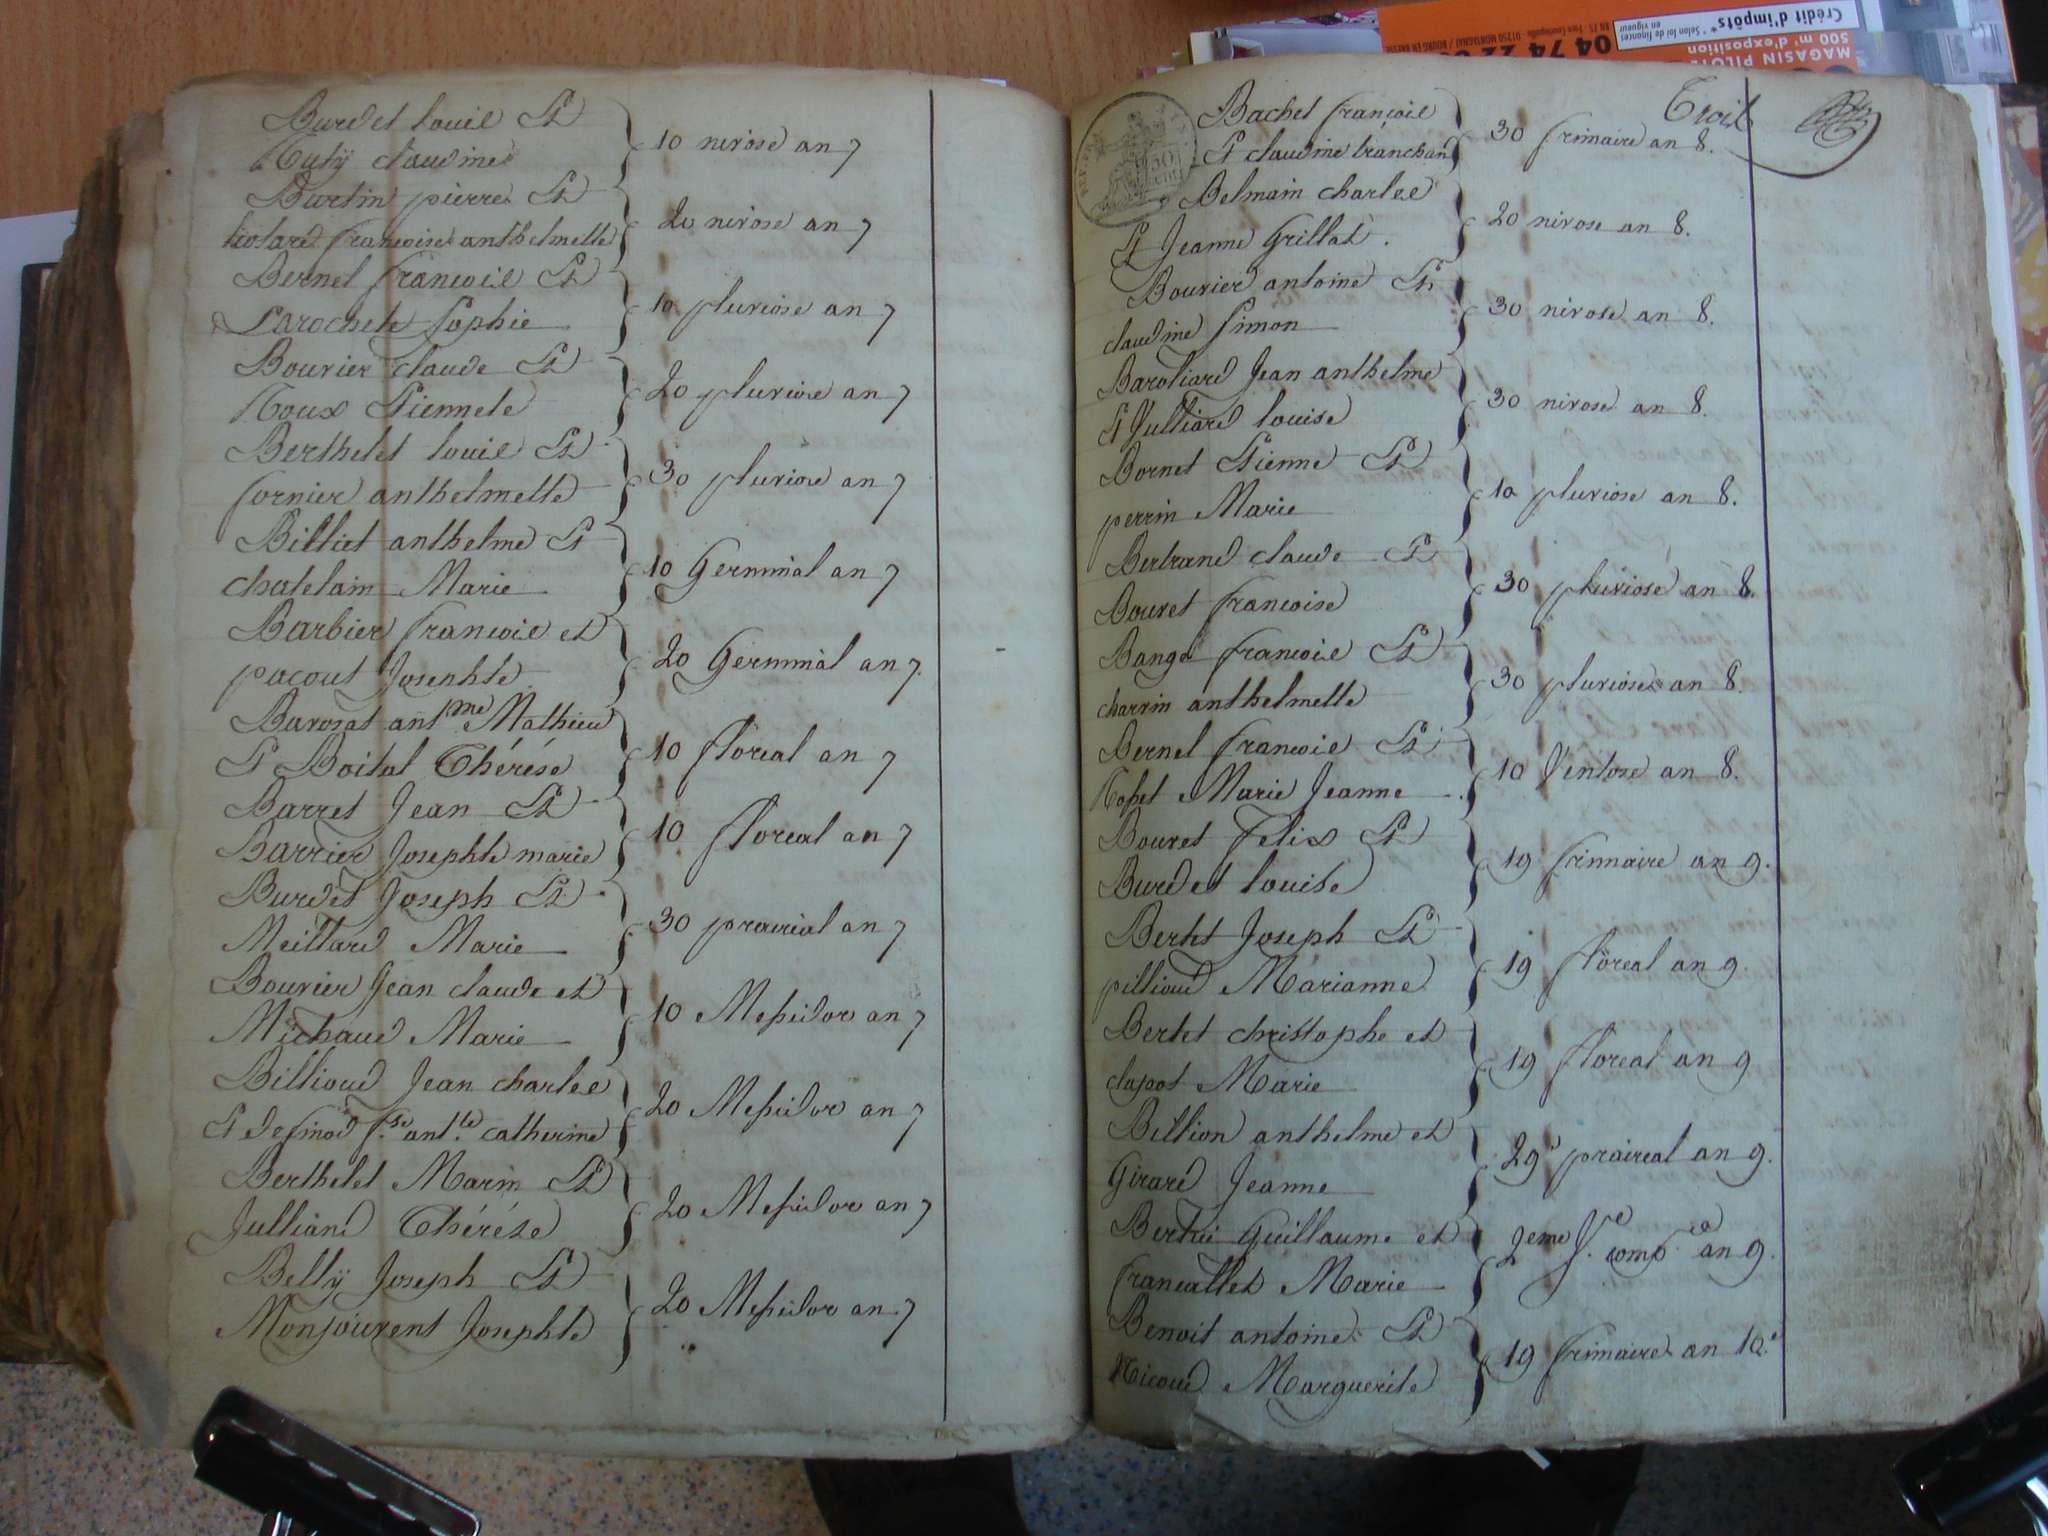 Burdet louis Et
Ruty claudine
10 nivose an 7
Burtin pierre Et
francoise anthelmette
20 nivose an 7
Bernel francois Et
Larochete Sophie
10 pluviose an 7
Bouvier claude Et
Roux Etiennete
20 pluviose an 7
Berthelet louis Et
fornier anthelmette
30 pluviose an 7
Billiet anthelme Et
chatelain Marie
10 Germinal an 7
Barbier francois et
pacout Josephte
20 Germinal an 7.
Barosat antpme Mathieu
Et Boital Thérése
10 floreal an 7
Barret Jean Et
Barrier Josephte marie
10 floreal an 7
Burdet Joseph Et
Meillard Marie
30 prairial an 7
Bouvier Jean claude et
Michaud Marie
10 Messidor an 7
Billioud Jean charles
Et f.se ant.te catherine
20 Messidor an 7
Berthelet Marin Et
Julliand Thérése
20 Messidor an 7
Belly Joseph Et
Monjouvent Josephte
20 Messidor an 7
Trois
Bachet francois
Et claudine branchand
30 frimaire an 8.
Belmain charles
Et Jeanne Grillat.
20 nivose an 8.
Bouvier antoine Et
claudine Simon
30 nivose an 8.
Baroliard Jean anthelme
Et Julliard louise
30 nivose an 8.
Bornet Etienne Et
perrin Marie
10 pluviose an 8.
Bertrand claude Et
Bouvet francoise
30 pluviose an 8.
Bange francois Et
charrin anthelmette
30 pluviose an 8.
Bernel francois Et
Marie Jeanne
10 Ventose an 8.
Bouvet Felix Et
Burdet louise
19 frimaire an 9.
Bertet Joseph Et
pillioud Marianne
19 floreal an 9.
Bertet christophe et
clapot Marie
19 floreal an 9
Billion anthelme et
Girard Jeanne
29 praireal an 9.
Guillaume et
francallet Marie
2eme J.r comp.re an 9.
Benoit antoine Et
Nicoud Marguerite
19 frimaire an 10.e
MAGASIN PILOTE
500 m² d'exposition
Crédit d'impôts*
* Selon loi de finances
en vigueur
04 74 22